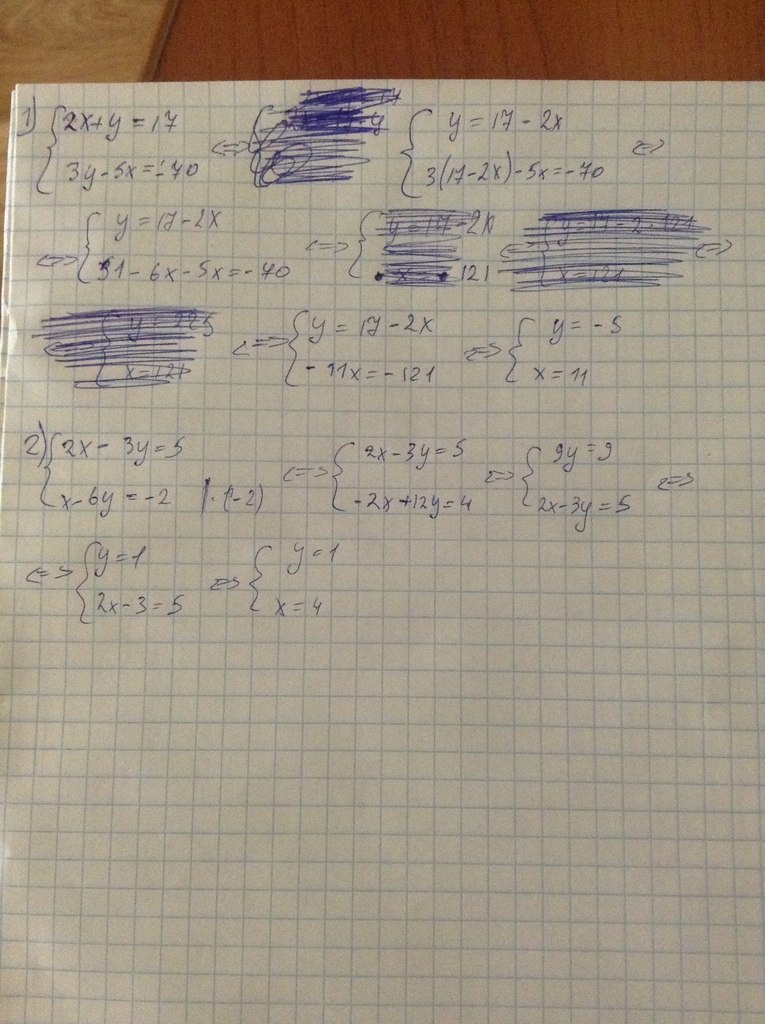 1) { 2x+y=17
3y-5x=-70 <=> { y=17-2x
3(17-2x)-5x=-70 <=>
<=> { y=17-2x
51-6x-5x=-70 <=>
<=> { y=17-2x
-11x=-121 <=> { y=-5
x=11
2) { 2x-3y=5
x-6y=-2 |·(-2) <=> { 2x-3y=5
-2x+12y=4 <=> { 9y=9
2x-3y=5 <=>
<=> { y=1
2x-3=5 <=> { y=1
x=4